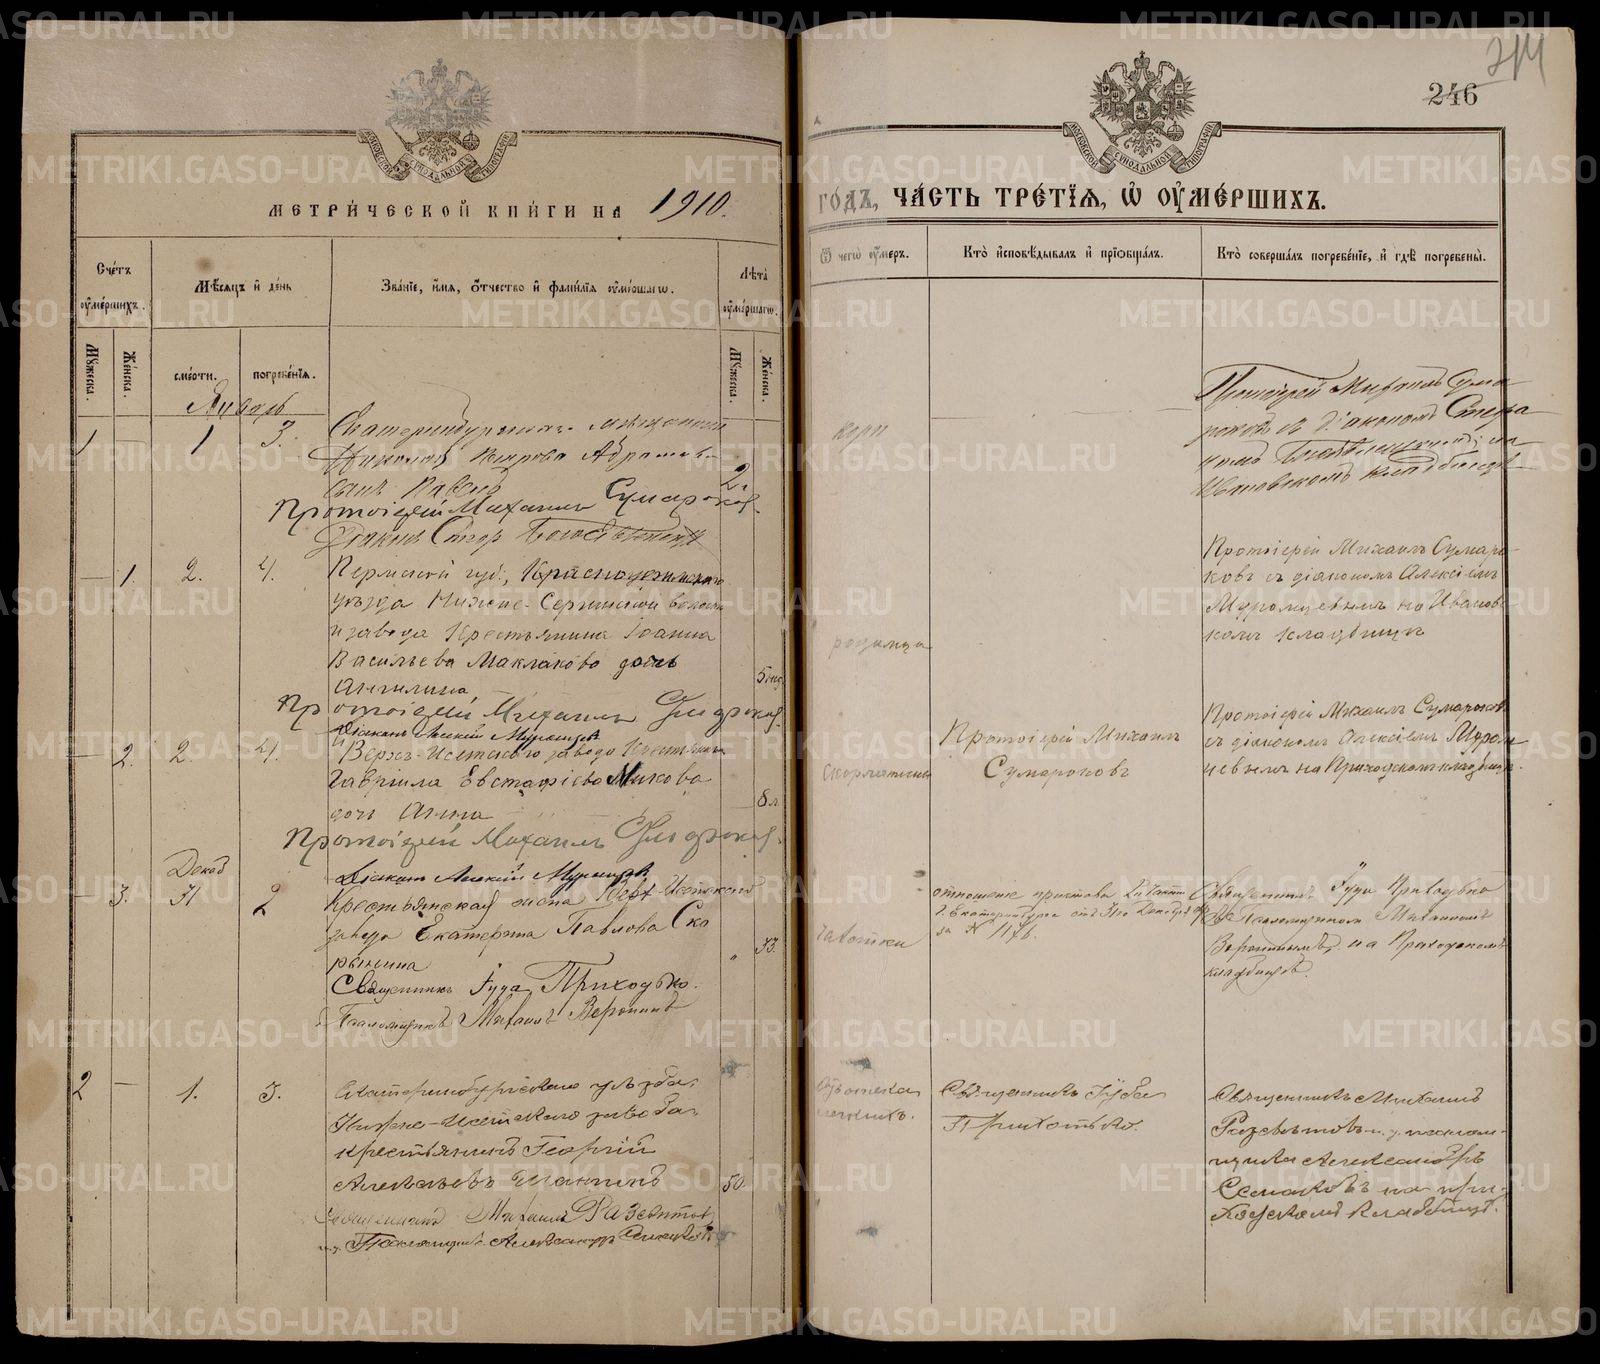 246
МЕТРИ́ЧЕСКОЙ КНИ́ГИ НА 1910.
ГО́ДЪ, ЧА́СТЬ ТРЕ́ТІѦ, Ѡ ОУ҆МЕ́РШИХЪ.
Сче́тъ оу҆ме́ршихъ.
Мѣ́сѧцъ и҆ де́нь
Зва́нїе, и҆́мѧ, ѻ҆́тчество и҆ фами́лїѧ оу҆ме́ршагѡ.
Лѣ́та оу҆ме́ршагѡ.
Мꙋ́жеска.
Же́нска.
сме́рти.
погребе́нїѧ.
Мꙋ́жеска.
Же́нска.
Ѿ чегѡ̀ оу҆́меръ.
Кто̀ и҆сповѣ́дывалъ и҆ прїѡбща́лъ.
Кто̀ соверша́лъ погребе́нїе, и҆ гдѣ̀ погребены̀.
Январь
1 — 1 3.
Николай
сынъ
2.
Протоіерей Михаилъ Сумароковъ
Діаконъ
кори
Протоіерей Михаилъ Сума
роковъ съ діакономъ
Ивановскомъ кладбищѣ
— 1. 2. 4.
Пермской губ., Красноуфимскаго
уѣзда Нижне-Сергинской волости
и завода Крестьянина Іоанна
Васильева Маклакова дочь
Ангелина
5 мѣс
Протоіерей Михаилъ Сумароковъ
Діаконъ Алексій Муромцевъ
родимца
Протоіерей Михаилъ Сумаро-
ковъ съ діакономъ Алексіемъ
Муромцевымъ на Иванов-
скомъ кладбищѣ
— 2. 2. 4.
Верхъ-Исетскаго завода Крестьянина
Гавріила Евстафіева Микова
дочь Анна
8 л.
Протоіерей Михаилъ Сумароковъ
Діаконъ Алексій Муромцевъ
Скарлатины
Протоіерей Михаилъ
Сумароковъ
Протоіерей Михаилъ Сумароковъ
съ діакономъ Алексіемъ Муром-
цевымъ на Приходскомъ кладбищѣ.
Декаб
— 3. 31 2
Крестьянская жена Верх-Исетскаго
завода Екатерина Павлова Ско
рынина
33.
Священникъ Іуда Приходько.
Псаломщикъ Михаилъ Воронинъ
чахотки
отношеніе пристава 2й части
г. Екатеринбурга отъ 31го Декабря
за № 1176.
Священникъ Іуда Приходько
съ Псаломщикомъ Михаиломъ
Воронинымъ, на Приходскомъ
кладбищѣ.
2 — 1. 3.
Екатеринбургскаго уѣзда,
Нижне-Исетскаго завода
крестьянинъ Георгій
Алексѣевъ
50.
Священникъ Михаилъ Разсвѣтовъ
и.д. Псаломщика Александръ
Священникъ Іуда
Приходько.
Священникъ Михаилъ
Разсвѣтовъ и. д. псалом-
щика Александръ
на при-
ходскомъ кладбищѣ.